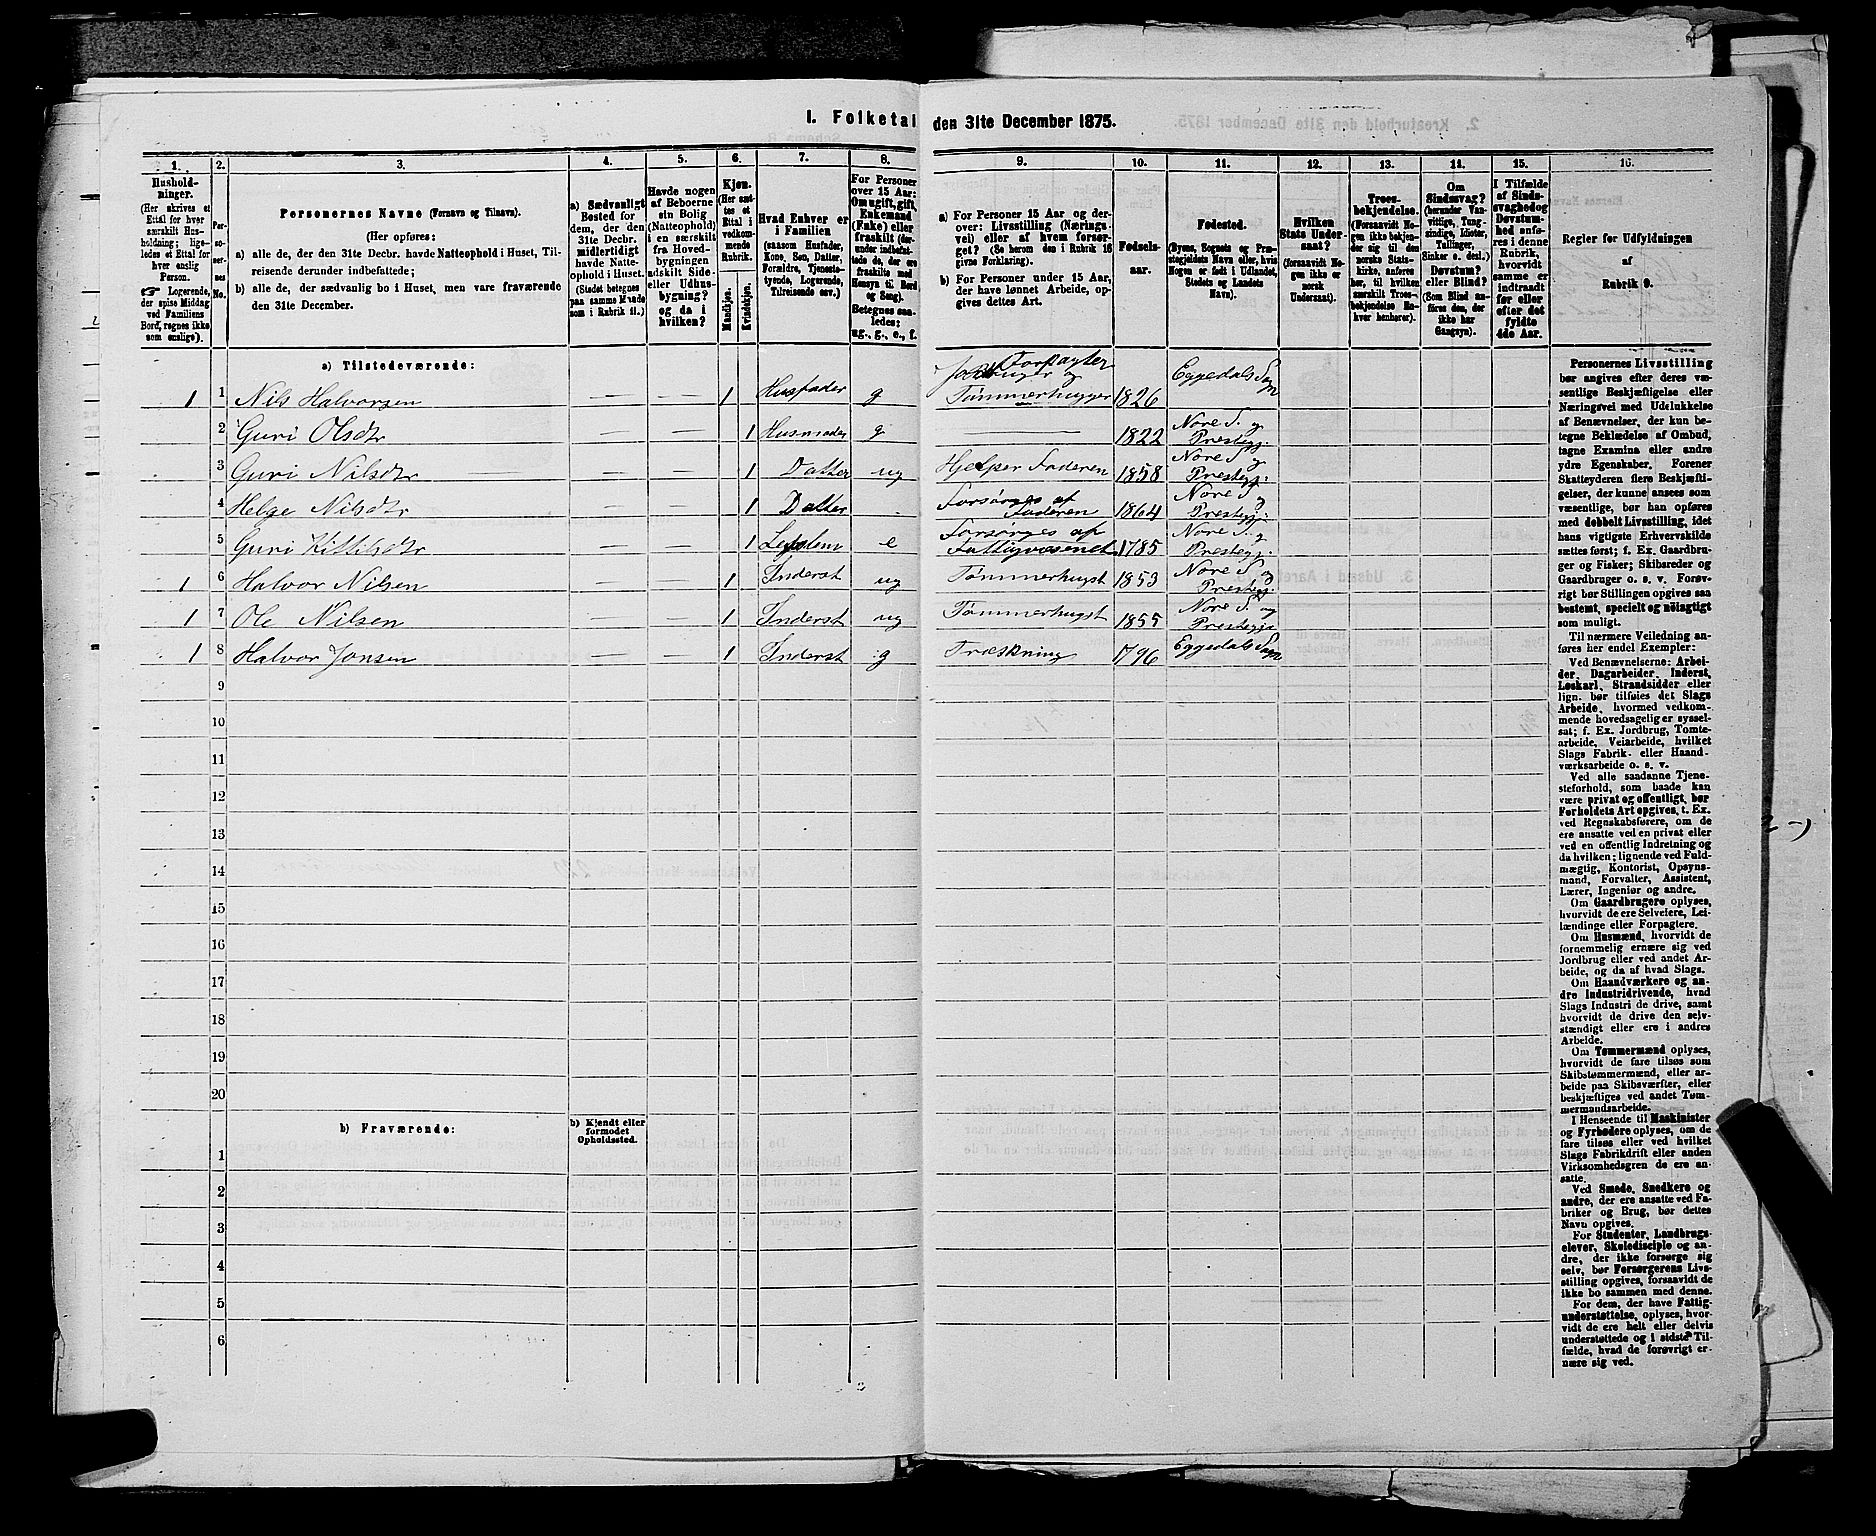 I. Folketal den 31te December 1875.
1. 2. 3. 4. 5. 6. 7. 8. 9. 10. 11. 12. 13. 14. 15. 16.
Hushold-
ninger.
(Her skrives et
Ettal for hver
særskilt Hus-
holdning; lige-
ledes et Ettal for
hver enslig
Person.
☞ Logerende,
der spise Middag
ved Familiens
Bord, regnes ikke
som enslige).
Per-
so-
ner-
nes
No.
Personernes Navne (Fornavn og Tilnavn).
(Her opføres:
a) alle de, der den 31te Decbr. havde Natteophold i Huset, Til-
reisende derunder indbefattede;
b) alle de, der sædvanlig bo i Huset, men vare fraværende
den 31te December.
a) Sædvanligt
Bosted for
dem, der den
31te Decbr.
midlertidigt
havde Natte-
ophold i Huset.
(Stedet betegnes
paa samme Maade
som i Rubrik 11.)
Havde nogen
af Beboerne
sin Bolig
(Natteophold)
i en særskilt
fra Hoved-
bygningen
adskilt Side-
eller Udhus-
bygning?
og da i
hvilken?
Kjøn.
(Her sæt-
tes et
Ettal i
vedkom-
mende
Rubrik.
Mandkjøn.
Kvindekjøn.
Hvad Enhver er
i Familien
(saasom Husfader,
Kone, Søn, Datter,
Forældre, Tjeneste-
tyende, Logerende,
Tilreisende osv.)
For Personer
over 15 Aar:
Om ugift, gift,
Enkemand
(Enke) eller
fraskilt (der-
under indbefat-
tede de, der ere
fraskilte med
Hensyn til Bord
og Seng).
Betegnes saa-
ledes:
ug., g., e., f.
a) For Personer 15 Aar og der-
over: Livsstilling (Nærings-
vei) eller af hvem forsør-
get? (Se herom den i Rubrik 16
givne Forklaring).
b) For Personer under 15 Aar,
der have lønnet Arbeide, op-
gives dettes Art.
Fødsels-
aar.
Fødested.
(Byens, Sognets og Præ-
stegjeldets Navn eller, hvis
Nogen er født i Udlandet,
Stedets og Landets
Navn).
Hvilken
Stats Under-
saat?
(forsaavidt No-
gen ikke er
norsk
Undersaat).
Troes-
bekjendelse.
(Forsaavidt No-
gen ikke bekjen-
der sig til den
norske Stats-
kirke, anføres
her, til hvilken
særskilt Troes-
bekjendelse En-
hver henhører).
Om
Sindssvag?
(herunder Van-
vittige, Tung-
sindige, Idioter,
Tullinger,
Sinker o. desl.)
Døvstum?
eller Blind?
(Som Blind an-
føres den, der
ikke har
Gangsyn).
I Tilfælde
af Sinds-
svaghed og
Døvstum-
hed anfø-
res i denne
Rubrik,
hvorvidt
samme er
indtraadt
før eller
efter det
fyldte
4de Aar.
Regler for Udfyldningen
af
Rubrik 9.
a) Tilstedeværende:
1 1 Nils Halvorsen — — 1 Husfader g Jordbruger Forpagter og Tømmerhugger 1826 Eggedals Sogn
2 Guri Olsdtr — — 1 Husmoder g — 1822 Nore S. og Prestegj.
3 Guri Nilsdtr — — 1 Datter ug Hjelper Faderen 1858 Nore S. og Prestegj.
4 Helge Nilsdtr — — 1 Datter Forsørges af Faderen 1864 Nore S og Prestegj.
5 Guri Kittilsdtr — — 1 e Forsørges af Fattigvæsenet 1785 Nore S. og Prestegj.
1 6 Halvor Nilsen — — 1 Inderst ug Tømmerhugst 1853 Nore S og Prestegj.
1 7 Ole Nilsen — — 1 Inderst ug Tømmerhugst 1855 Nore S. og Prestegj.
1 8 Halvor Jonsen — — 1 Inderst g Træskning 1796 Eggedals Sogn
9
10
11
12
13
14
15
16
17
18
19
20
b) Fraværende:
b) Kjendt eller
formodet
Opholdssted.
1
2
3
4
5
6
Personernes Livsstilling
bør angives efter deres væ-
sentlige Beskjæftigelse eller
Næringsvei med Udelukkelse
af Benævnelser, der kun be-
tegne Beklædelse af Ombud,
tagne Examina eller andre
ydre Egenskaber. Forener
Skatteyderen flere Beskjæfti-
gelser, der kunne ansees som
væsentlige, bør han opføres
med dobbelt Livsstilling, idet
hans vigtigste Erhvervskilde
sættes først; f. Ex. Gaardbru-
ger og Fisker; Skibsreder og
Gaardbruger o. s. v. Forøv-
rigt bør Stillingen opgives saa
bestemt, specielt og nøiagtigt
som muligt.
Til nærmere Veiledning an-
føres her endel Exempler:
Ved Benævnelserne: Arbei-
der, Dagarbeider, Inderst,
Løskarl, Strandsidder eller
lign. bør tilføies det Slags
Arbeide, hvormed vedkom-
mende hovedsagelig er syssel-
sat; f. Ex. Jordbrug, Tomte-
arbeide, Veiarbeide, hvilket
Slags Fabrik- eller Haand-
værksarbeide o. s. v.
Ved alle saadanne Tjene-
steforhold, som baade kan
være privat og offentligt, bør
Forholdets Art opgives, t. Ex.
ved Regnskabsførere, om de
ere ansatte ved en privat eller
ved en offentlig Indretning og
da hvilken; lignende ved Fuld-
mægtig, Kontorist, Opsyns-
mand, Forvalter, Assistent,
Lærer, Ingeniør og andre.
Om Gaardbrugere oplyses,
hvorvidt de ere Selveiere, Lei-
lændinge eller Forpagtere.
Om Husmænd, hvorvidt de
fornemmelig ernære sig ved
Jordbrug eller ved andet Ar-
beide, og da af hvad Slags.
Om Haandværkere og an-
dre Industridrivende, hvad
Slags Industri de drive, samt
hvorvidt de drive den selv-
stændigt eller ere i andres
Arbeide.
Om Tømmermænd oplyses,
hvorvidt de fare tilsøs som
Skibstømmermænd, eller ar-
beide paa Skibsværfter, eller
beskjæftiges ved andet Tøm-
mermandsarbeide.
I Henseende til Maskinister
og Fyrbødere oplyses, om de
fare tilsøs eller ved hvilket
Slags Fabrikdrift eller anden
Virksomhedsgren de ere an-
satte.
Ved Smede, Snedkere og
andre, der ere ansatte ved Fa-
briker og Brug, bør dettes
Navn opgives.
For Studenter, Landbrugs-
elever, Skoledisciple og an-
dre, der ikke forsørge sig
selv, bør Forsørgerens Livs-
stilling opgives, forsaavidt de
ikke bo sammen med denne.
For dem, der have Fattig-
understøttelse, oplyses, hvor-
vidt de ere helt eller delvis
understøttede og i sidste Til-
fælde, hvad de forøvrigt er-
nære sig ved.